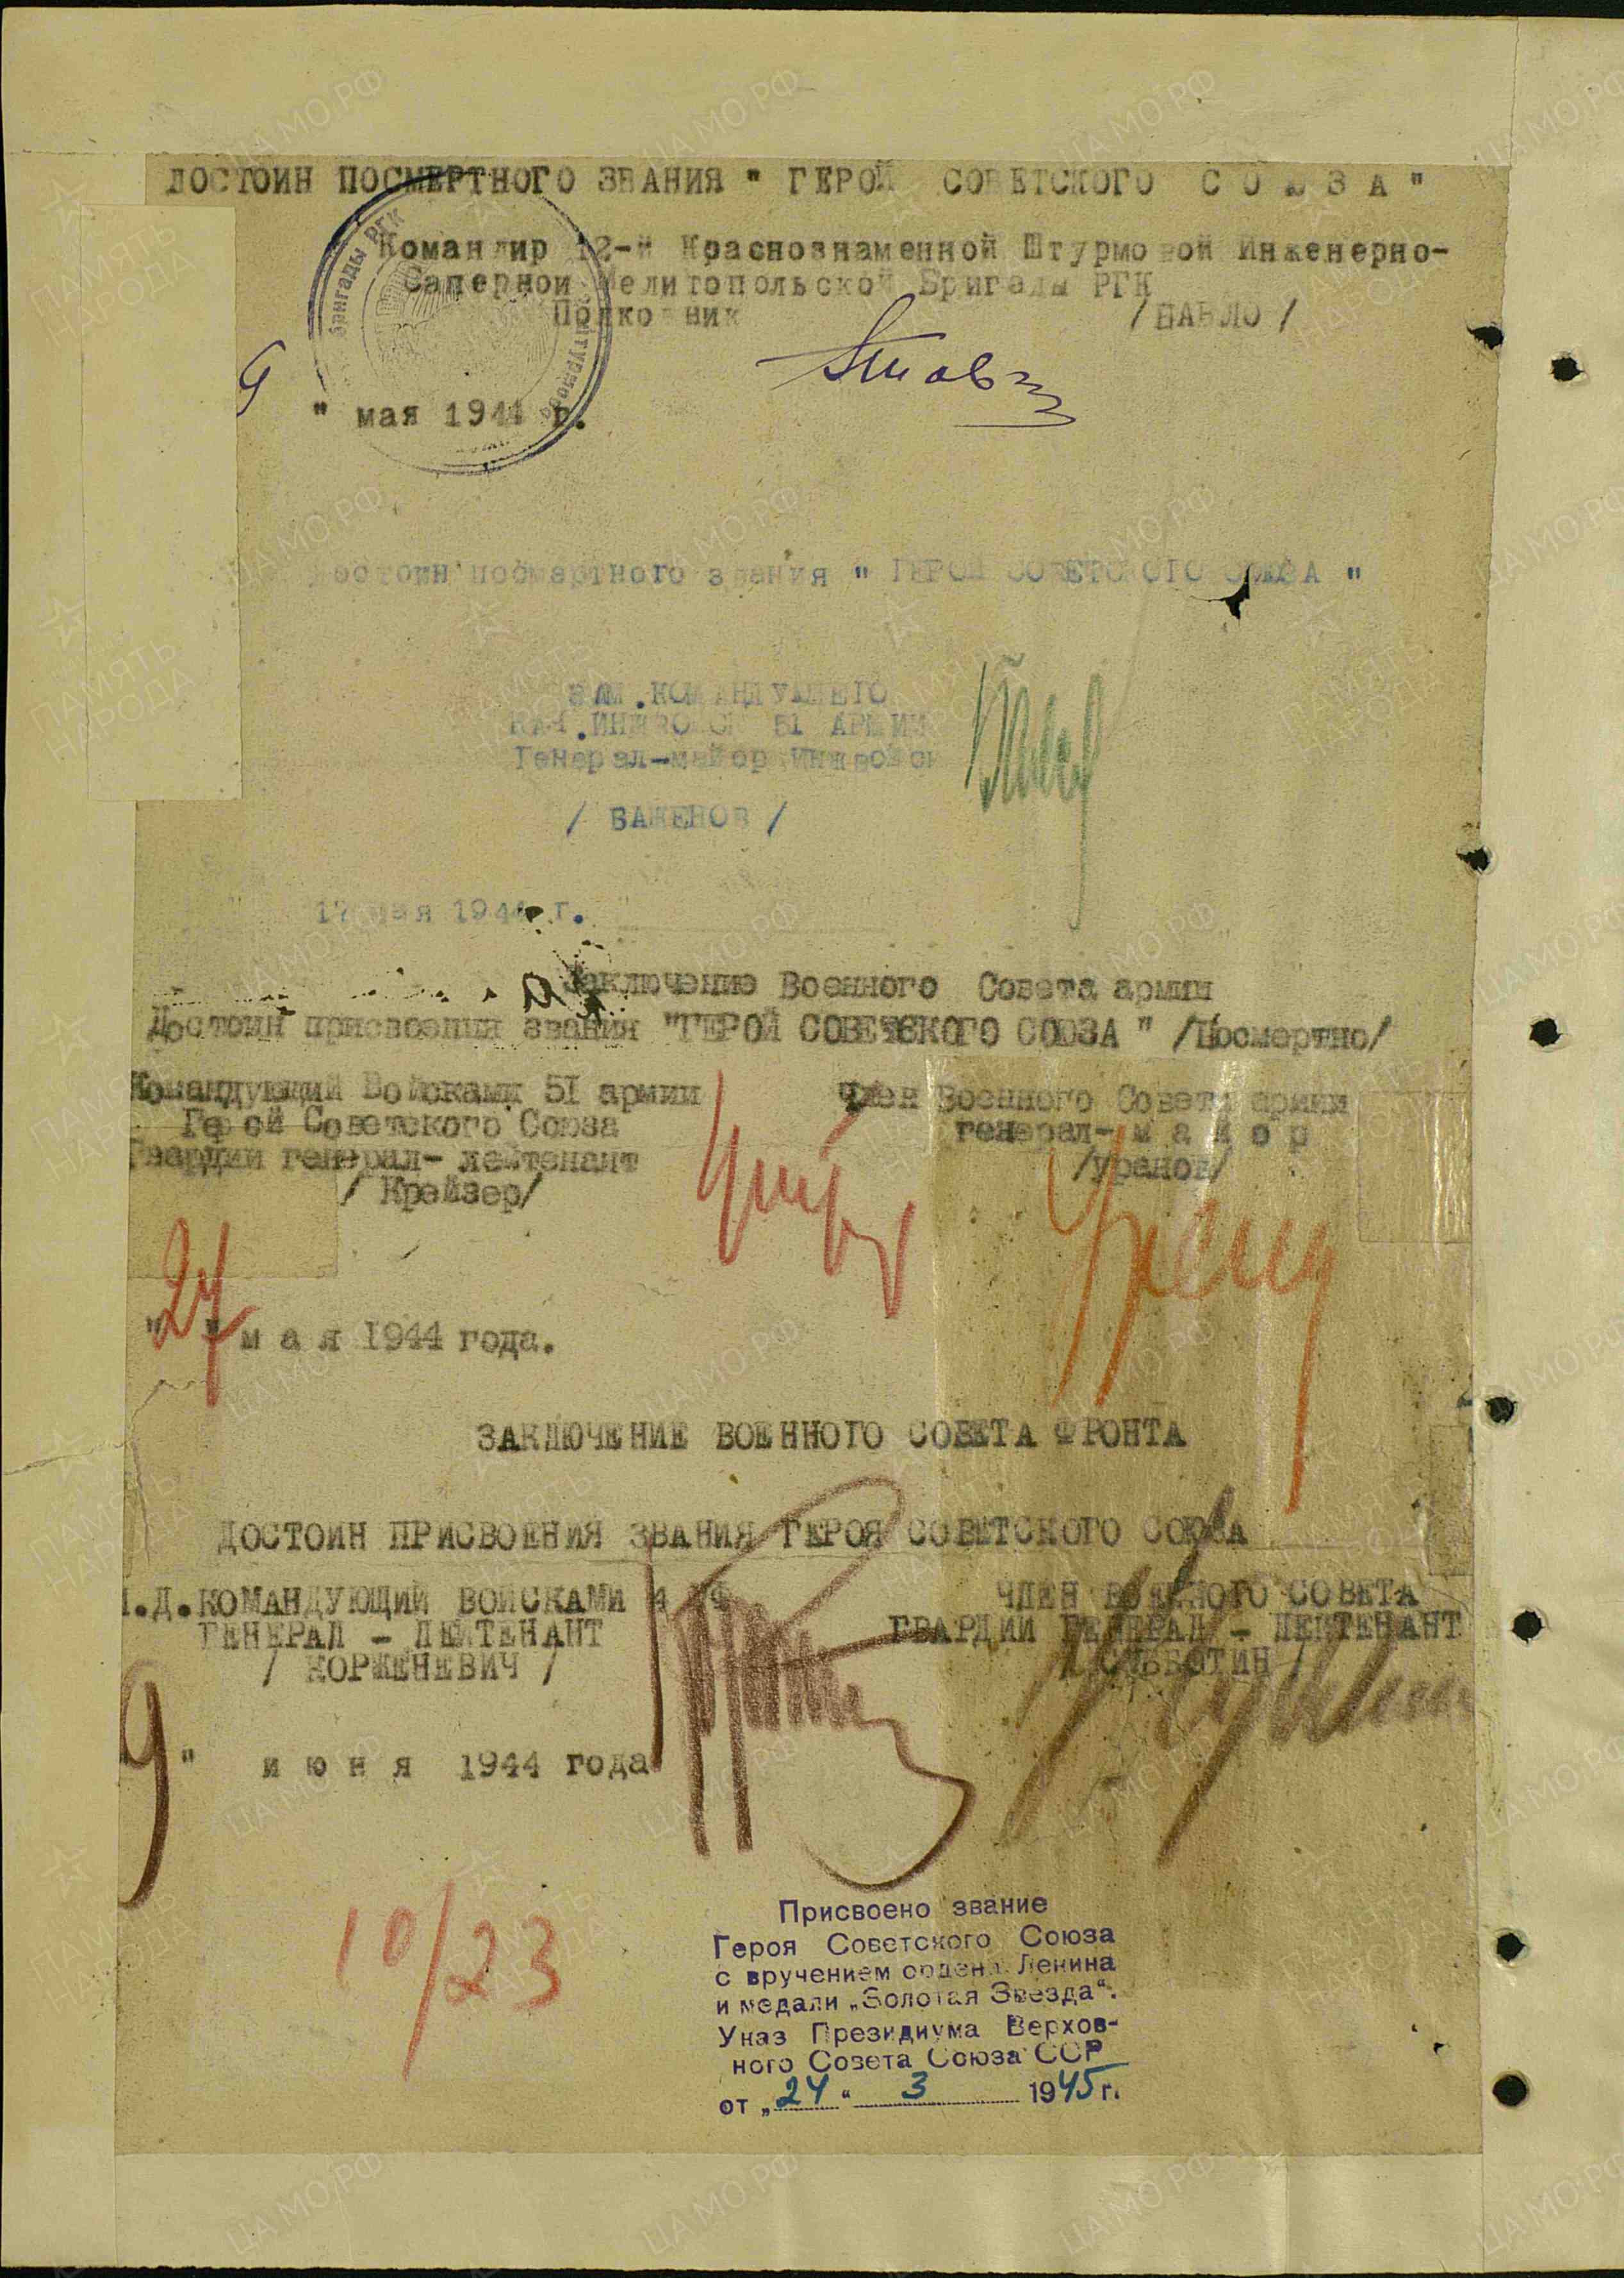 ДОСТОИН ПОСМЕРТНОГО ЗВАНИЯ " ГЕРОЙ СОВЕТСКОГО С О Ю З А "
Командир 12-й Краснознаменной Штурмовой Инженерно-
Саперной Мелитопольской Бригады РГК
Полковник / ПАВЛО /
бригады РГК
9 " мая 1944 г.
достоин посмертного звания " ГЕРОЙ СОВЕТСКОГО СОЮЗА "
ЗАМ.КОМАНДУЮЩЕГО
НАЧ.ИНЖВОЙСК 51 АРМИИ
Генерал-майор инжвойск
/ БАЖЕНОВ /
17 мая 1944 г.
Заключение Военного Совета армии
Достоин присвоения звания "ГЕРОЙ СОВЕТСКОГО СОЮЗА " /Посмертно/
Командующий Войсками 51 армии Член Военного Совета армии
Герой Советского Союза генерал- м а й о р
Гвардии генерал- лейтенант /уранов/
/ Крейзер/
" 27 " м а я 1944 года.
ЗАКЛЮЧЕНИЕ ВОЕННОГО СОВЕТА ФРОНТА
ДОСТОИН ПРИСВОЕНИЯ ЗВАНИЯ ГЕРОЯ СОВЕТСКОГО СОЮЗА
И.Д.КОМАНДУЮЩИЙ ВОЙСКАМИ 4 УФ ЧЛЕН ВОЕННОГО СОВЕТА
ГЕНЕРАЛ - ЛЕЙТЕНАНТ ГВАРДИИ ГЕНЕРАЛ - ЛЕЙТЕНАНТ
/ КОРЖЕНЕВИЧ / / СУББОТИН /
9 " и ю н я 1944 года
10/23
Присвоено звание
Героя Советского Союза
с вручением ордена Ленина
и медали „Золотая Звезда".
Указ Президиума Верхов-
ного Совета Союза ССР
от „24" 3 1945 г.
ЦАМО.РФ
ПАМЯТЬ
НАРОДА